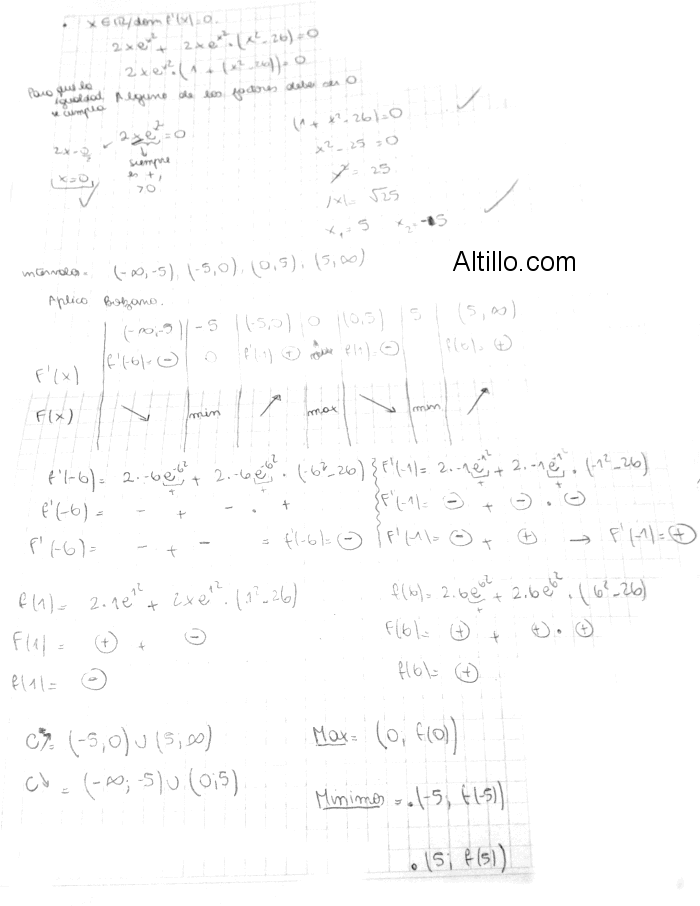 • x ∈ ℝ/dom f'(x)=0.
2xe^x² + 2xe^x² · (x²-26)=0
2xe^x² · (1 + (x²-26))=0
Para que la igualdad se cumpla Alguno de los factores debe ser 0
2x=0 ✓ 2xe^x²=0 (1+x²-26)=0 ✓
x=0, ✓ siempre es +, >0 x²-25=0
x² = 25
|x|= √25
x₁=5 x₂=-5 ✓
intervalos= (-∞,-5), (-5,0), (0,5), (5,∞)
Altillo.com
Aplico Bolzano.
(-∞,-5) | -5 | (-5,0) | 0 | (0,5) | 5 | (5,∞)
F'(x) f'(-6)=⊖ | 0 | f'(-1) ⊕ | f(1)=⊖ | f(6)=⊕
F(x) ↘ | min | ↗ | max | ↘ | min | ↗
f'(-6)= 2.-6e^-6² + 2.-6e^-6² · (-6²-26)
f'(-6)= - + - . +
F'(-6)= - + - = f'(-6)=⊖
F'(-1)= 2.-1e^-1² + 2.-1e^-1² · (-1²-26)
F'(-1)= ⊖ + ⊖ · ⊖
F'(-1)= ⊖ + ⊕ → F'(-1)=⊕
f(1)= 2.1e^1² + 2xe^1² · (1²-26)
F(1)= ⊕ + ⊖
f(1)= ⊖
f(6)= 2.6e^6² + 2.6e^6² · (6²-26)
F(6)= ⊕ + ⊕ · ⊕
f(6)= ⊕
C↗= (-5,0) ∪ (5,∞)
C↘ = (-∞;-5) ∪ (0;5)
Max= (0, f(0))
Minimos = .(-5; f(-5))
• (5; f(5))